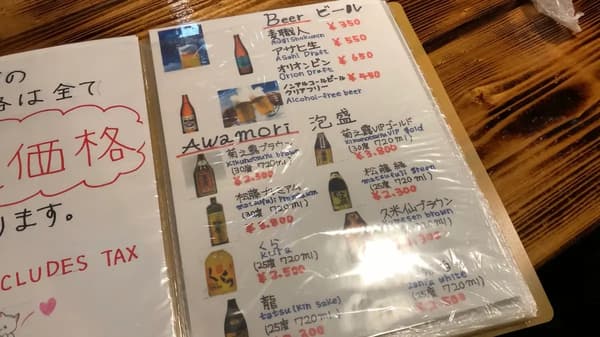 の
は全て
価格
ります。
CLUDES TAX
Beer ビール
麦職人 ¥350
アサヒ生 ¥550
Asahi Draft
オリオンビン ¥650
Orion Draft
ノンアルコールビール
クリアフリー ¥450
Alcohol-free beer
Awamori 泡盛
菊之露ブラウン
Kikunotsuyu brown
(30度 720ml)
¥2.500
菊之露VIPゴールド
Kikunotsuyu VIP gold
(30度 720ml)
¥3.800
松藤プレミアム
matsufuji Premium
(30度 720ml)
松藤
matsufuji
(25度 720ml)
¥2.300
くら
Kura
(25度 720ml)
¥2.500
久米仙ブラウン
Kumesen brown
(25度 720ml)
龍
tatsu (kin sake)
(25度 720ml)
white
(25度 720ml)